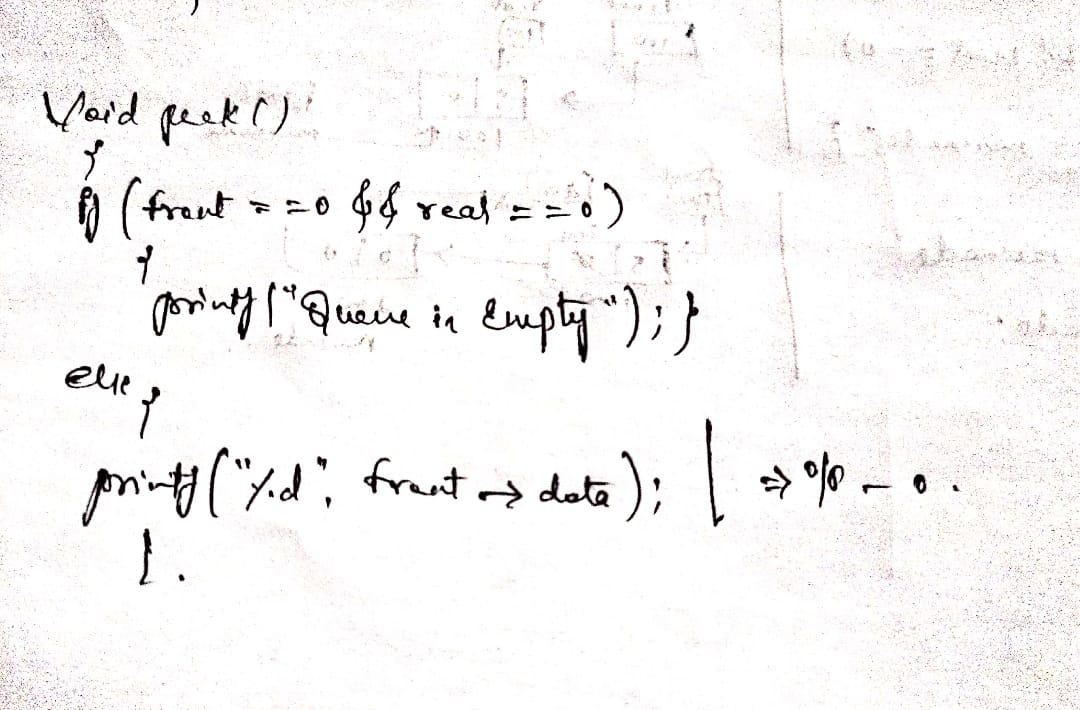 Void peek()
{
if (front == 0 && rear == 0)
{
printf("Queue in Empty"); }
else {
printf("%d", front → data); } ⇒ % - 0.
}.